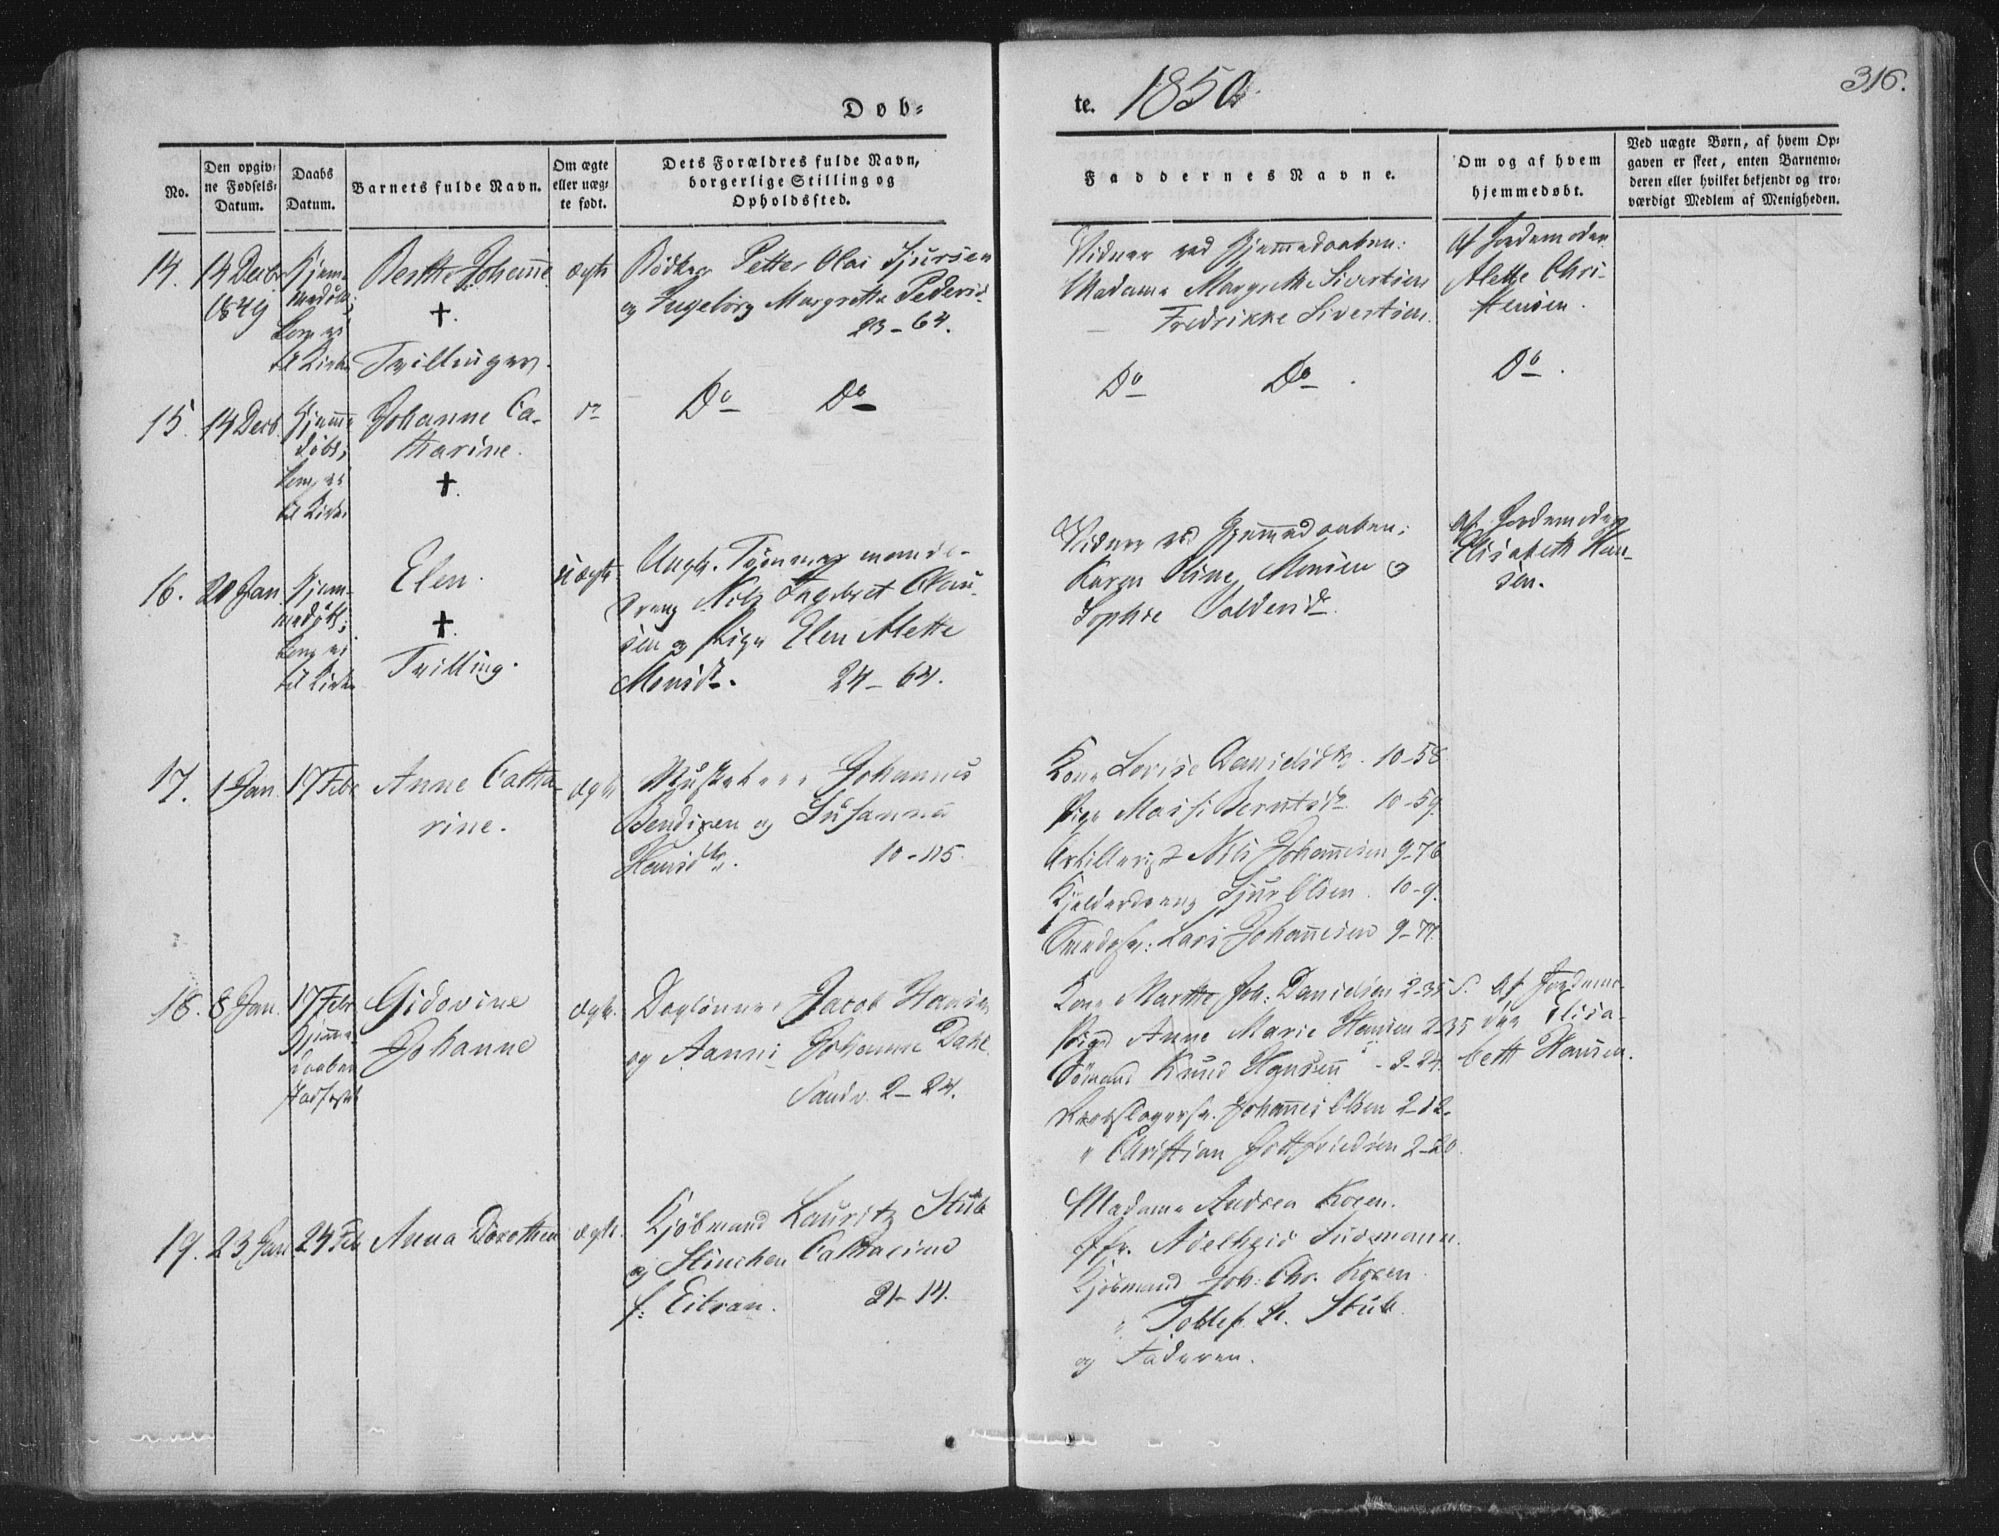 Døb-
te. 1850
316.
No.
Den opgiv-
ne Fødsels-
Datum.
Daabs
Datum.
Barnets fulde Navn.
Om ægte
eller uæg-
te født.
Dets Forældres fulde Navn,
borgerlige Stilling og
Opholdssted.
Faddernes Navne.
Om og af hvem
hjemmedøbt.
Ved uægte Børn, af hvem Op-
gaven er skeet, enten Barnemo-
deren eller hvilket bekjendt og tro-
værdigt Medlem af Menigheden.
14.
14 Decbr
1849
Hjem-
medøbt;
kom ei
til Kirke
Berthe Johanne
†.
Tvillinger.
ægte
Bødker Petter Olai Sjursen
og Ingeborg Margrethe Pedersd
23-64.
Vidner ved Hjemmedaaben:
Madame Margrethe Sivertsen
Fredrikke Sivertsen.
Af Jordemoder
Alette Chri-
stensen.
15.
14 Decb.
Hjemme
døbt;
kom ei
til Kirke
Johanne Ca-
tharine.
†.
do
Do Do
Do Do.
Do.
16.
20 Jan
Hjem-
medøbt;
kom ei
til Kirke
Elen.
†.
Tvilling.
uægte
Ungk. Tømmermands-
dreng Nils Ingebret Clau-
sen og Pige Elen Alette
Monsdr. 24-64.
Vidner ved Hjemmedaaben:
Karen Oline Monsen og
Sophie
Af Jordemoder
Elisabeth Han-
sen.
17.
1 Jan.
17 Febr
Anne Catha-
rine.
ægte
Musketeer Johannes
Bendixen og Susanna
Hansdtr. 10-115.
Kone Lovise Danielsdtr. 10-58
Pige Massi Berntsdr. 10-59.
Artillerist Nils Johannesen 9-76
Kjelderdreng Sjur Olsen. 10-9.
Smedesv: Lars Johannesen 9-77.
18.
8 Jan.
17 Febr
Hjemme-
daaben
stadfæstet
Gidovine
Johanne
ægte.
Daglønner Jacob Hansen
og Aanni Johanne Dahl
Sandv. 2-24.
Kone Marthe Joh: Danielsen 2-35
Pige Anne Marie Hansen 2-35
Sømand Knud Hansen - 2-24.
Reebslagersv. Johannes Olsen 2-12.
" Christian Gottfriedsen 2-20.
Af Jordemo-
der Elisa-
beth Hansen.
19.
23 Jan
24 Feb
Anna Dorothea
ægte.
Kjøbmand Lauritz Stub
og Stinchen Catharine
f: Eitran. 21-14.
Madame Andrea Koren.
Jfr. Adelheid Sudmann.
Kjøbmand Joh: Chr. Koren
" Stub.
og Faderen.